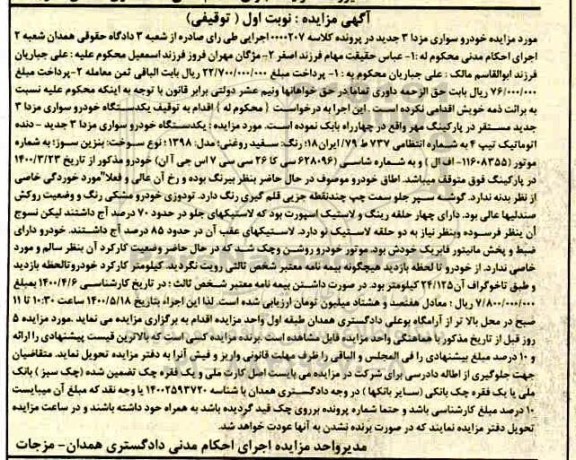 آگهی مزایده : نوبت اول ( توقیفی)
مورد مزایده خودرو سواری مزدا ۳ جدید در پرونده کلاسه ۰۰۰۰۲۰۷ اجرایی طی رای صادره از شعبه ۳ دادگاه حقوقی همدان شعبه ۲
اجرای احکام مدنی محکوم له :۱- عباس حقیقت مهام فرزند اصغر ۲- مژگان مهران فروز فرزند اسمعیل محکوم علیه : علی جباریان
فرزند ابوالقاسم مالک : علی جباریان محکوم به : ۱- پرداخت مبلغ ۲۲/۷۰۰/۰۰۰/۰۰۰ ریال بابت الباقی ثمن معامله ۲-پرداخت مبلغ
۷۶/۰۰۰/۰۰۰ ریال بابت حق الزحمه داوری تماما در حق خواهانها ونیم عشر دولتی برابر قانون با توجه به اینکه محکوم علیه نسبت
به برائت ذمه خویش اقدامی نکرده است . این اجرا به درخواست ( محکوم له ) اقدام به توقیف یکدستگاه خودرو سواری مزدا ۳
جدید مستقر در پارکینگ مهر واقع در چهارراه بابک نموده است. مورد مزایده : یکدستگاه خودرو سواری مزدا ۳ جدید - دنده
اتوماتیک تیپ ۴ به شماره انتظامی ۷۳۷ ط ۷۹/ ایران۱۸؛ رنگ: سفید روغنی؛ مدل: ۱۳۹۸ ؛ نوع سوخت: بنزین سوز؛ به شماره
موتور (۱۱۶۰۸۳۵۵- اف ال ) و به شماره شاسی (۶۲۸۰۹۶ سی کا ۲۶ سی سی ۷ اس جی آ ان) خودرو مذکور از تاریخ ۱۴۰۰/۳/۲۳
در پارکینگ فوق متوقف میباشد. اطاق خودرو موصوف در حال حاضر بنظر بیرنگ بوده و رخ آن عالی و فعلا"مورد خوردگی خاصی
از نظر بدنه ندارد. گوشه سپر جلو سمت چپ چندنقطه جزیی قلم گیری رنگ دارد. تودوزی خودرو مشکی رنگ و وضعیت روکش
صندلیها عالی بود. دارای چهار حلقه رینگ و لاستیک اسپورت بود که لاستیکهای جلو در حدود ۷۰ درصد آج داشتند لیکن نسوج
آن بنظر فرسوده وبنظر نیاز به دو حلقه لاستیک نو دارد. لاستیکهای عقب آن در حدود ۸۵ درصد آج داشتند. خودرو دارای
ضبط و پخش مانیتور فابریک خودش بود. موتور خودرو روشن وچک شد که در حال حاضر وضعیت کارکرد آن بنظر سالم و مورد
خاصی ندارد. از خودرو تا لحظه بازدید هیچگونه بیمه نامه معتبر شخص ثالثی رویت نگردید. کیلومتر کارکرد خودروتالحظه بازدید
و طبق تاخوگراف آن۲۴/۱۲۵ کیلومتر بود. در صورت داشتن بیمه نامه معتبر شخص ثالث : در تاریخ کارشناسی ۱۴۰۰/۴/۶ بمبلغ
۷/۸۰۰/۰۰۰/۰۰۰ ریال : معادل هفتصد و هشتاد میلیون تومان ارزیابی شده است. لذا این اجراء بتاریخ ۱۴۰۰/۵/۱۸ ساعت ۱۰:۳۰ تا ۱۱
صبح در محل بالا تر از آرامگاه بوعلی دادگستری همدان طبقه اول واحد مزایده اقدام به برگزاری مزایده می نماید .مورد مزایده ۵
روز قبل از تاریخ مذکور با هماهنگی واحد مزایده قابل مشاهده است .برنده مزایده کسی است که بالاترین قیست پیشنهادی را ارائه
و ۱۰ درصد مبلغ پیشنهادی را فی المجلس و الباقی را ظرف مهلت قانونی واریز و فیش آنرا به دفتر مزایده تحویل نماید. متقاضیان
جهت جلوگیری از اطاله دادرسی برای شرکت در مزایده می بایست اصل کارت ملی و یک فقره چک تضمین شده (چک سبز ) بانک
ملی یا یک فقره چک بانکی (سایر بانکها ) در وجه دادگستری همدان با شناسه ۱۴۰۰۲۵۹۳۷۲۰ یا وجه نقد که مبلغ آن میبایست
۱۰ درصد مبلغ کارشناسی باشد و حتما شماره پرونده برروی چک قید گردیده باشد به همراه خود داشته باشند و در ساعت مزایده
تحویل دفتر مزایده نمایند که در صورت برنده نشدن به آنها عودت خواهد شد.
مدیرواحد مزایده اجرای احکام مدنی دادگستری همدان- مزجات